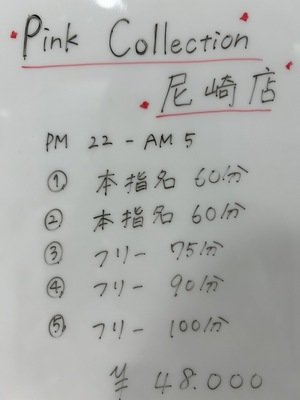 Pink Collection
尼崎店
PM 22 - AM 5
① 本指名 60分
② 本指名 60分
③ フリー 75分
④ フリー 90分
⑤ フリー 100分
¥ 48.000